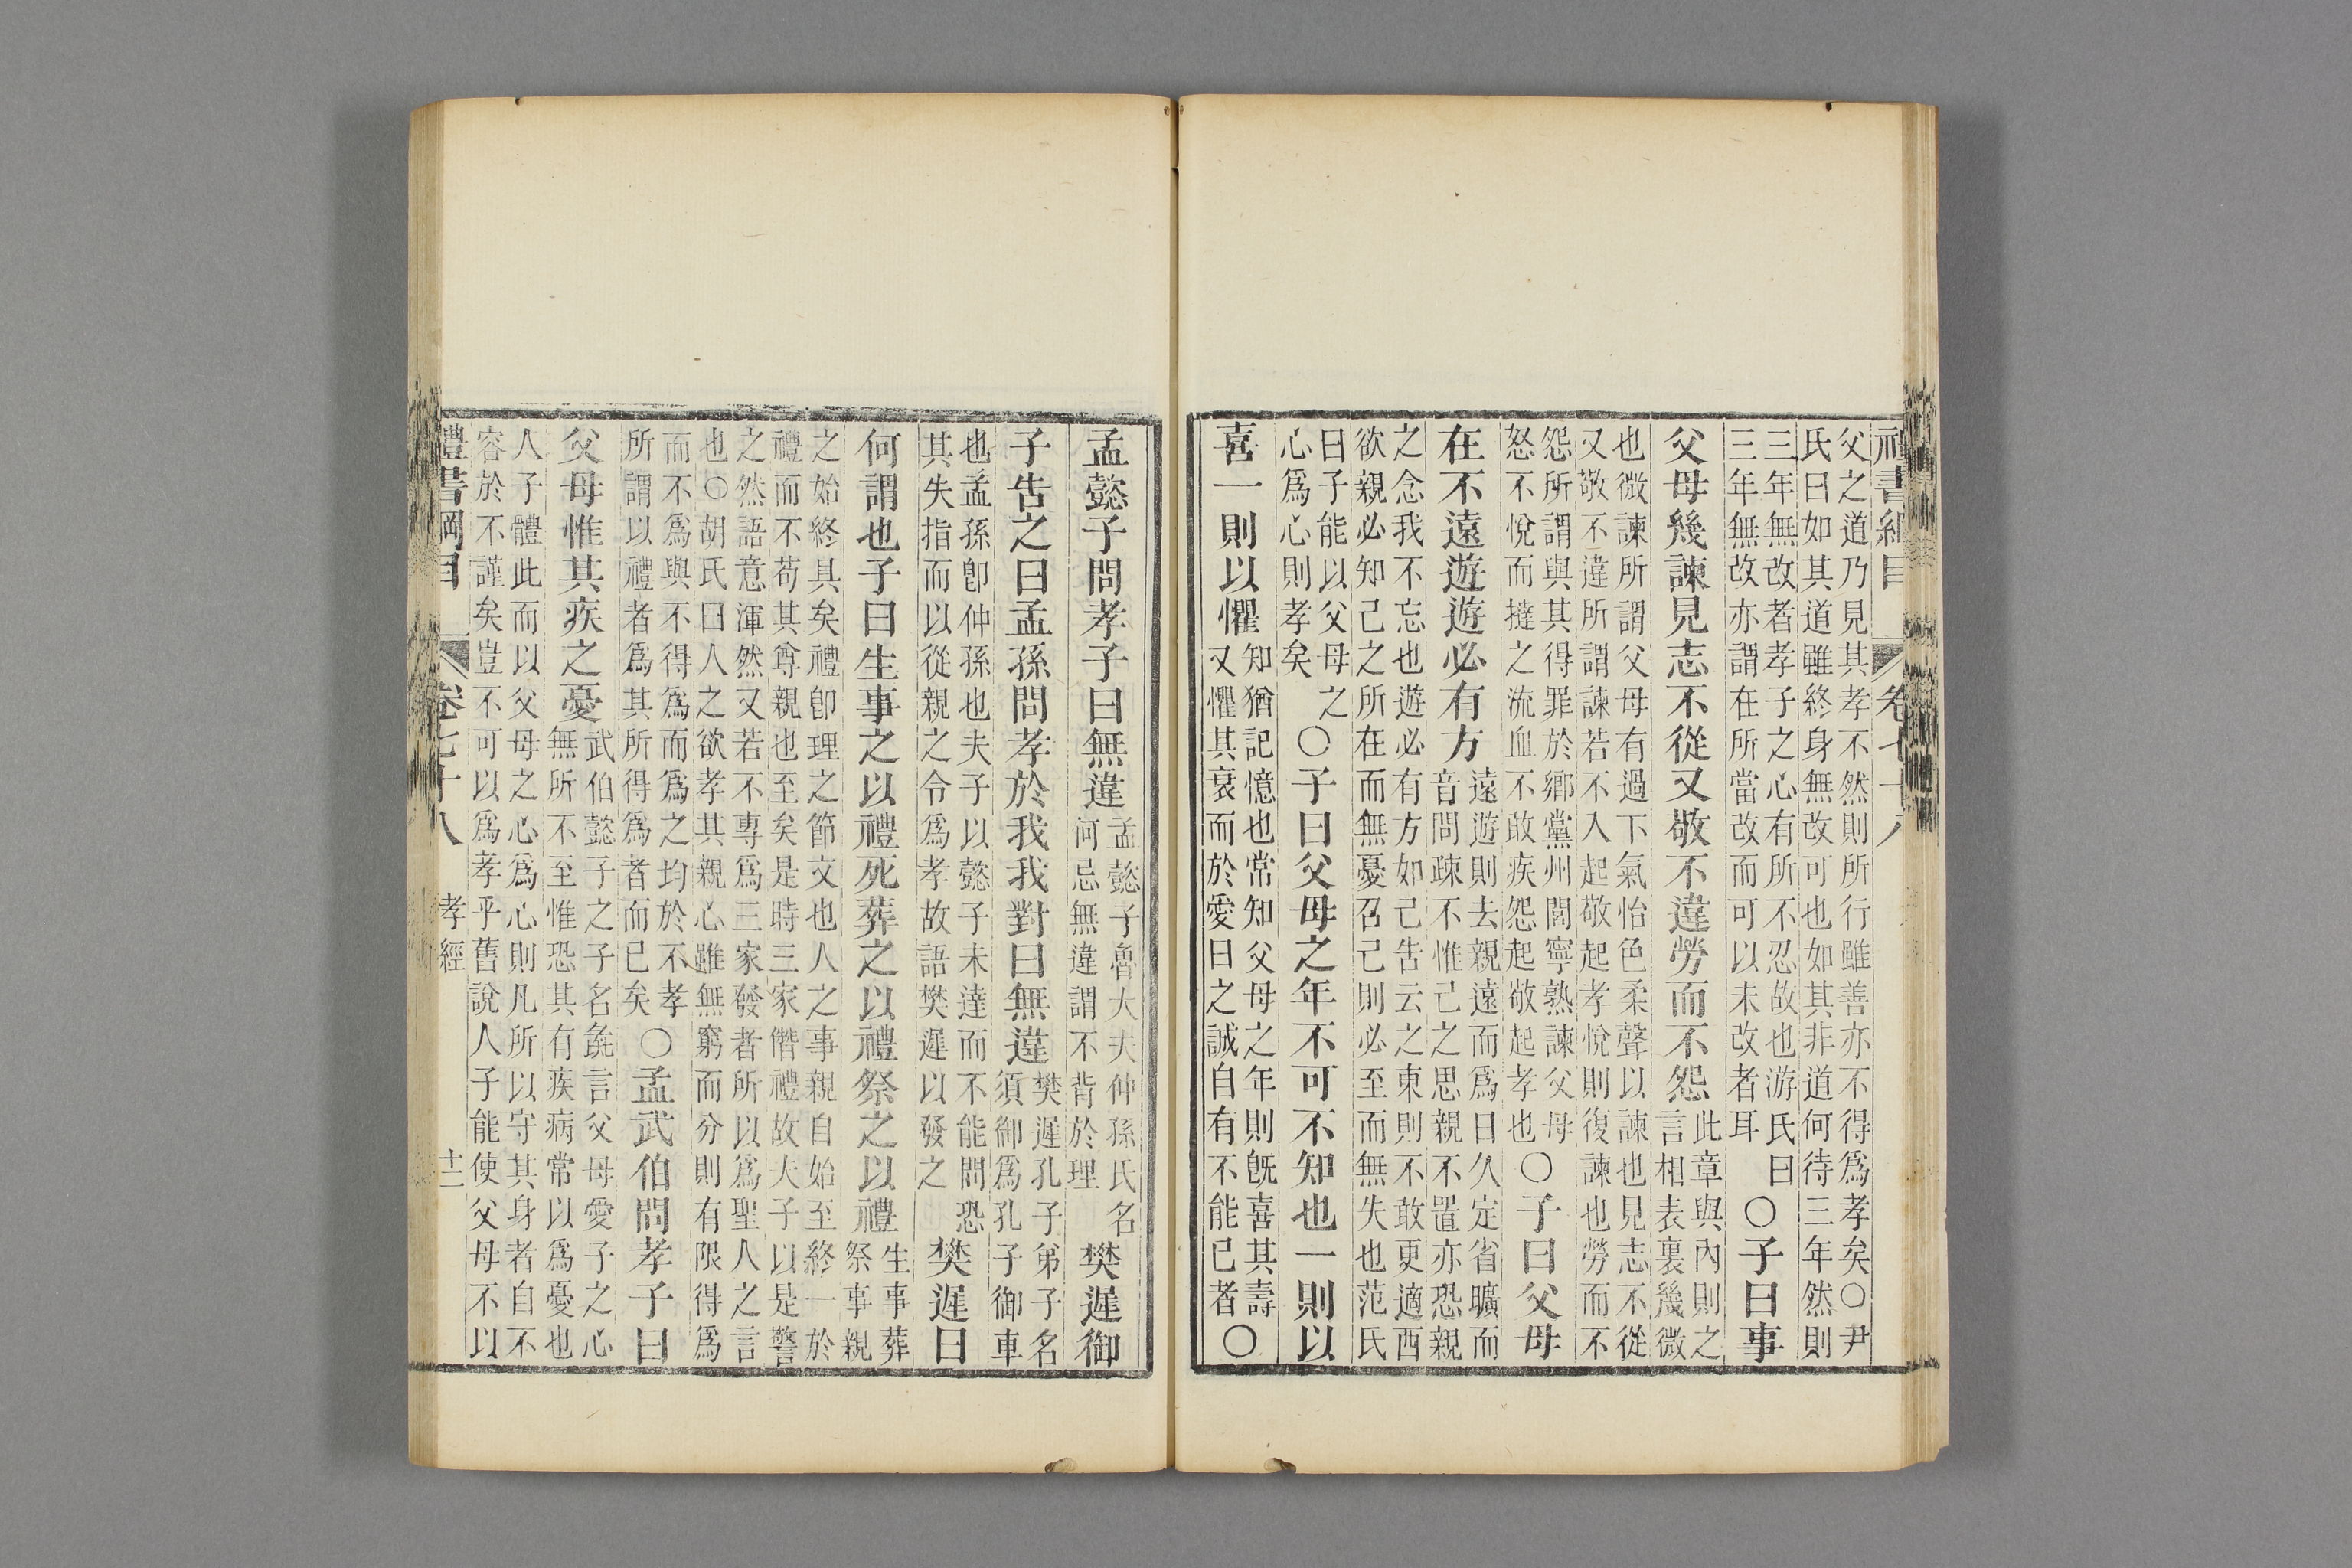 書綱目 卷七十八
父之道乃見其孝不然則所行雖善亦不得爲孝矣〇尹
氏曰如其道雖終身無改可也如其非道何待三年然則
三年無改者孝子之心有所不忍故也游氏曰
三年無改亦謂在所當改而可以未改者耳
〇子曰事
父母幾諫見志不從又敬不違勞而不怨
此章與內則之
言相表裏幾微
也微諫所謂父母有過下氣怡色柔聲以諫也見志不從
又敬不違所謂諫若不入起敬起孝悅則復諫也勞而不
怨所謂與其得罪於鄉黨州閭寧熟諫父母
怒不悅而撻之流血不敢疾怨起敬起孝也
〇子曰父母
在不遠遊遊必有方
遠遊則去親遠而爲日久定省曠而
音問疎不惟己之思親不置亦恐親
之念我不忘也遊必有方如己告云之東則不敢更適西
欲親必知己之所在而無憂召己則必至而無失也范氏
曰子能以父母之
心爲心則孝矣
〇子曰父母之年不可不知也一則以
喜一則以懼
知猶記憶也常知父母之年則旣喜其壽
又懼其衰而於愛日之誠自有不能已者
〇
孟懿子問孝子曰無違
孟懿子魯大夫仲孫氏名
何忌無違謂不背於理
樊遲御
子告之曰孟孫問孝於我我對曰無違
樊遲孔子弟子名
須御爲孔子御車
也孟孫卽仲孫也夫子以懿子未達而不能問恐
其失指而以從親之令爲孝故語樊遲以發之
樊遲曰
何謂也子曰生事之以禮死葬之以禮祭之以禮
生事葬
祭事親
之始終具矣禮卽理之節文也人之事親自始至終一於
禮而不苟其尊親也至矣是時三家僭禮故夫子以是警
之然語意渾然又若不專爲三家發者所以爲聖人之言
也〇胡氏曰人之欲孝其親心雖無窮而分則有限得爲
而不爲與不得爲而爲之均於不孝
所謂以禮者爲其所得爲者而已矣
〇孟武伯問孝子曰
父母惟其疾之憂
武伯懿子之子名彘言父母愛子之心
無所不至惟恐其有疾病常以爲憂也
人子體此而以父母之心爲心則凡所以守其身者自不
容於不謹矣豈不可以爲孝乎舊說人子能使父母不以
禮書綱目 卷七十八 孝經 十二